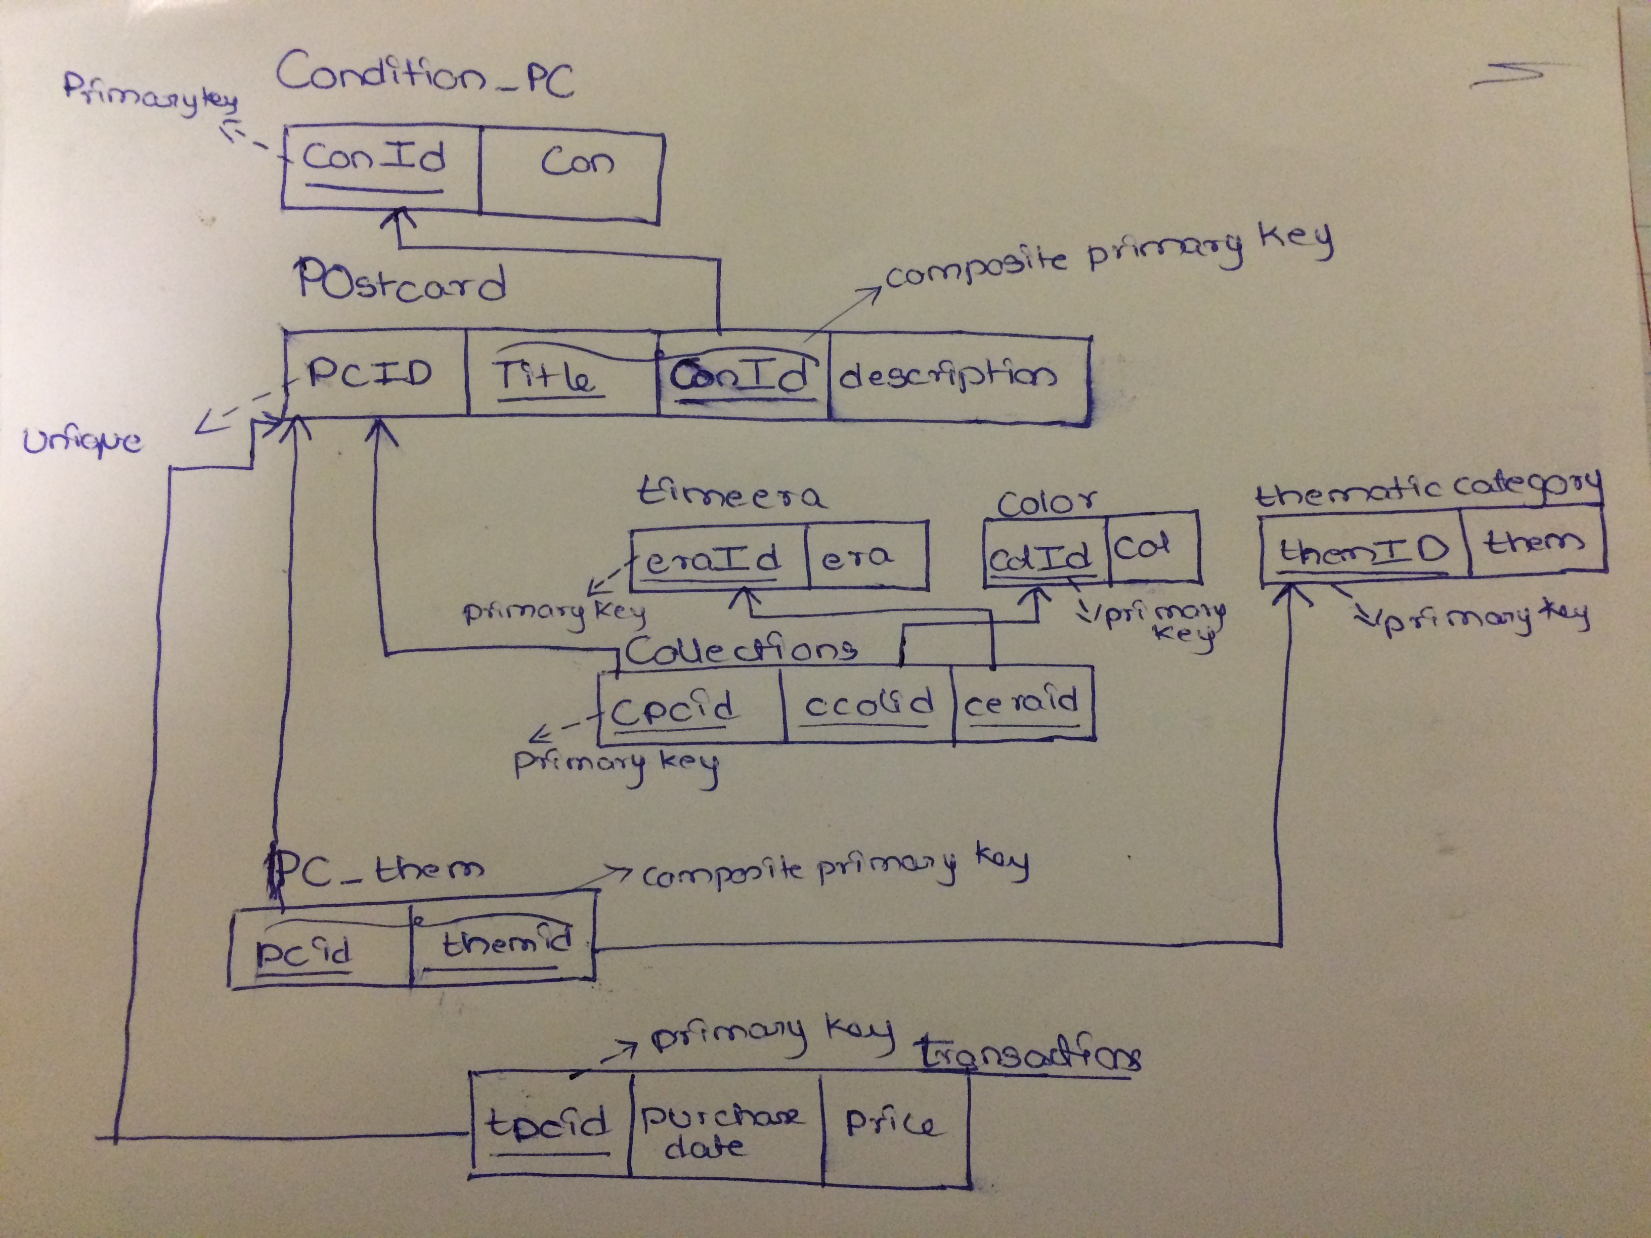 Condition_PC
Primarykey
ConId Con
composite primary key
POstcard
PCID Title ConId description
unique
timeera
eraId era
primary key
color
colId col
primary
key
thematic category
themID them
primary key
Collections
cpcid ccolid ceraid
primary key
PC_them
composite primary key
pcid themid
primary key
transactions
tpcid purchase date price